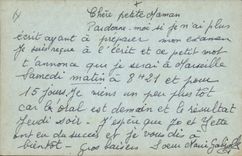 Chère petite Maman
Pardonne-moi si je n'ai plus
écrit ayant à préparer mon examen
Je suis reçue à l'écrit et ce petit mot
t'annonce que je serai à Marseille
Samedi matin à 8h21 et pour
15 jours. Je viens un peu plus tôt
car l'oral est demain et le résultat
Jeudi soir. J'espère que Jo et Yette
ont eu du succès et je vous dis à
bientôt - Gros baisers